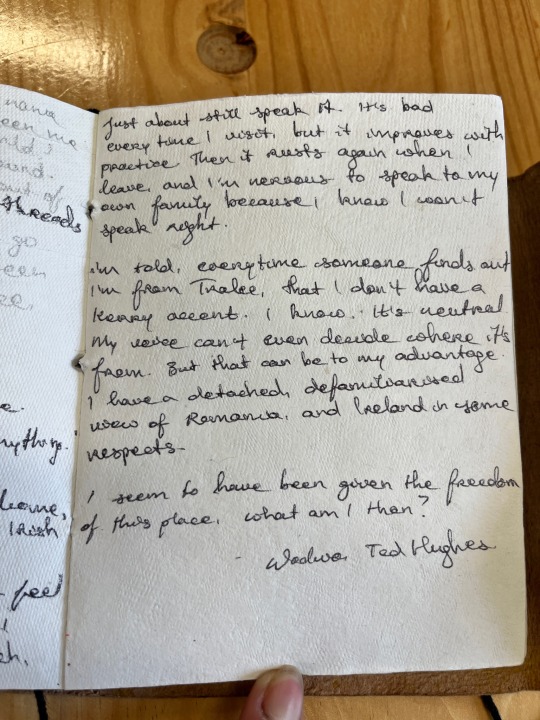 nana
een me
nld,
ound.
ount of
threads
go
eem
ee,
e.
nything.'
leave,
Irish
feel
!
eh.
just about still speak it. It's bad
every time I visit, but it improves with
practice. Then it rusts again when I
leave, and I'm nervous to speak to my
own family because I know I won't
speak right.
I'm told, everytime someone finds out
I'm from Tralee, that I don't have a
Kerry accent. I know. It's neutral.
My voice can't even decide where it's
from. But that can be to my advantage.
I have a detached, defamiliarised
view of Romania, and Ireland in some
respects.
I seem to have been given the freedom
of this place, what am I than?
- Wodwo, Ted Hughes